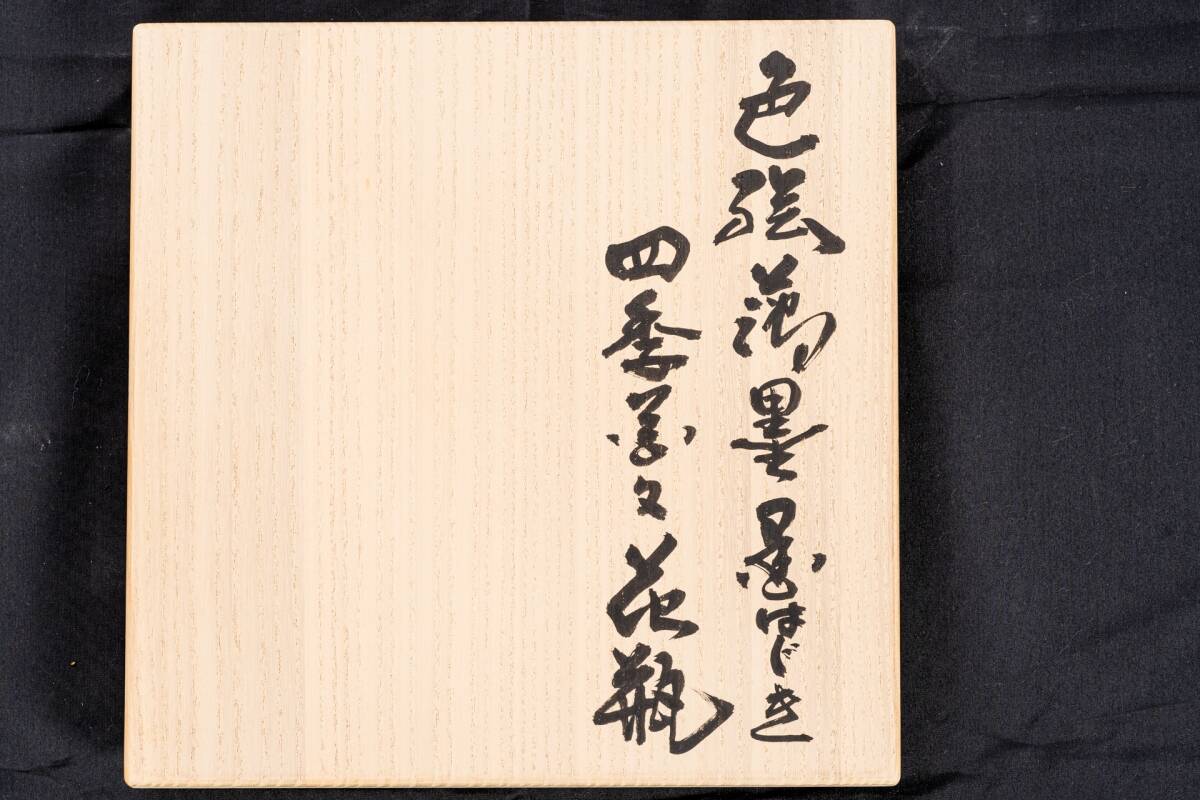 色絵薄墨墨はじき
四季花文花瓶